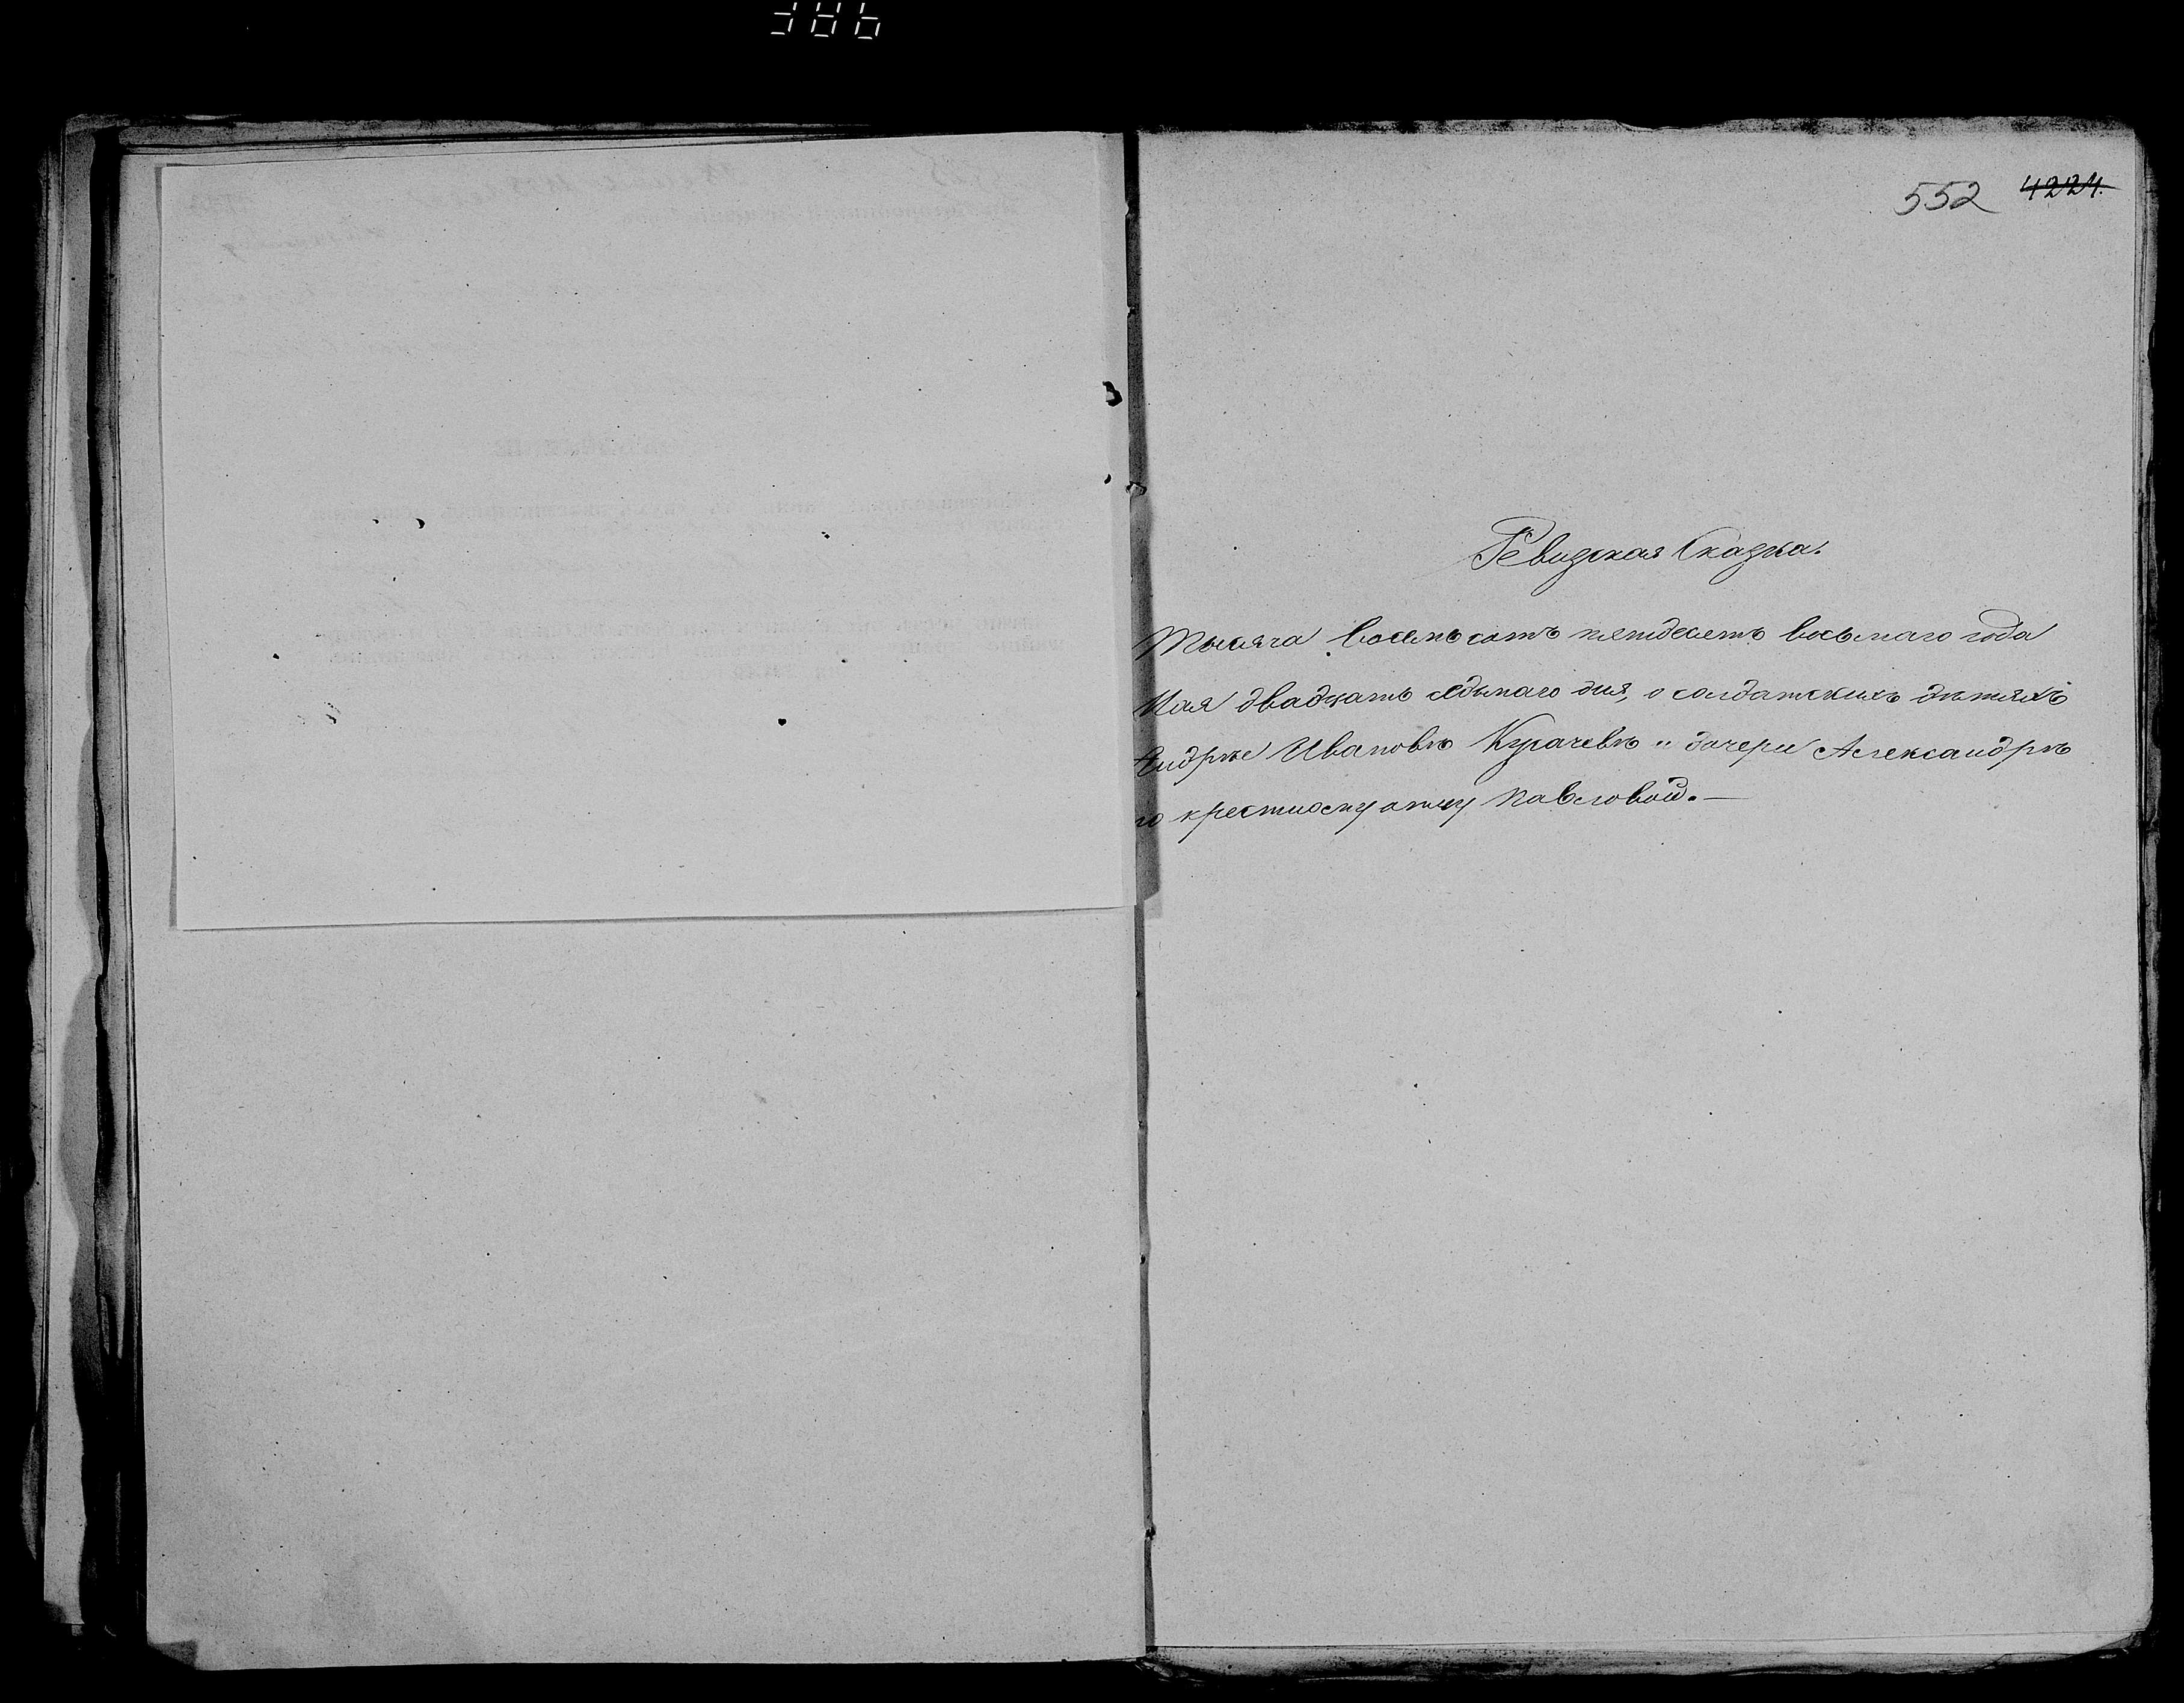 552 4224.
Ревизская Сказка.
Тысяча восемьсотъ пятдесятъ восьмаго года
Мая двадцать седьмаго дня, о солдатскихъ дѣтяхъ
Андрѣе Ивановѣ Курачевѣ и дочери Александрѣ
по крестному отцу Павловой.—